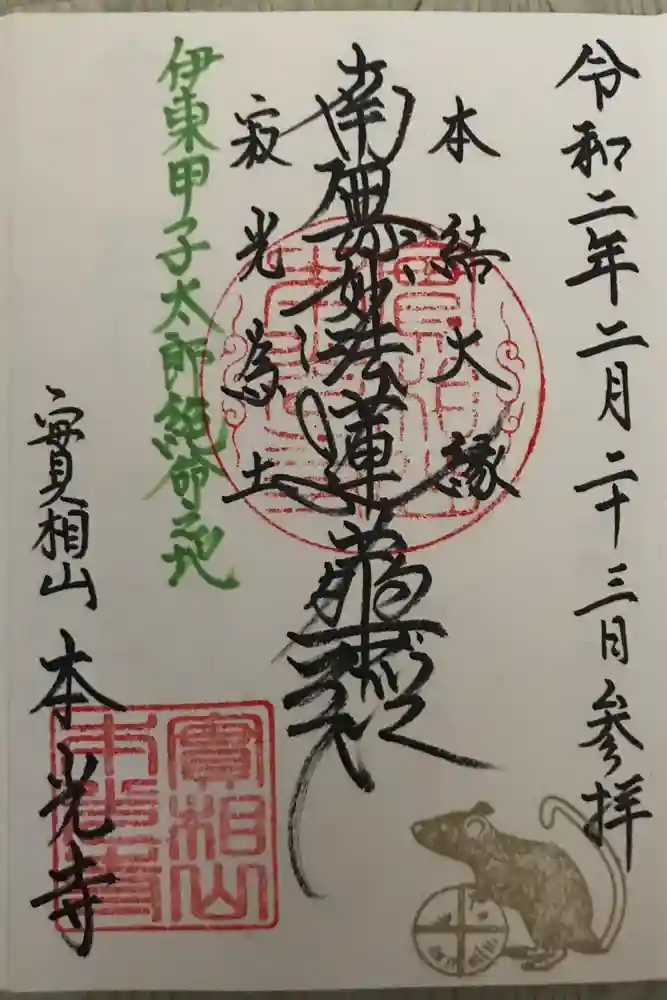 令和二年二月二十三日参拝
本結大縁
南無妙法蓮華經
寂光為土
伊東甲子太郎絶命之地
實相山 本光寺
實相山
本光寺